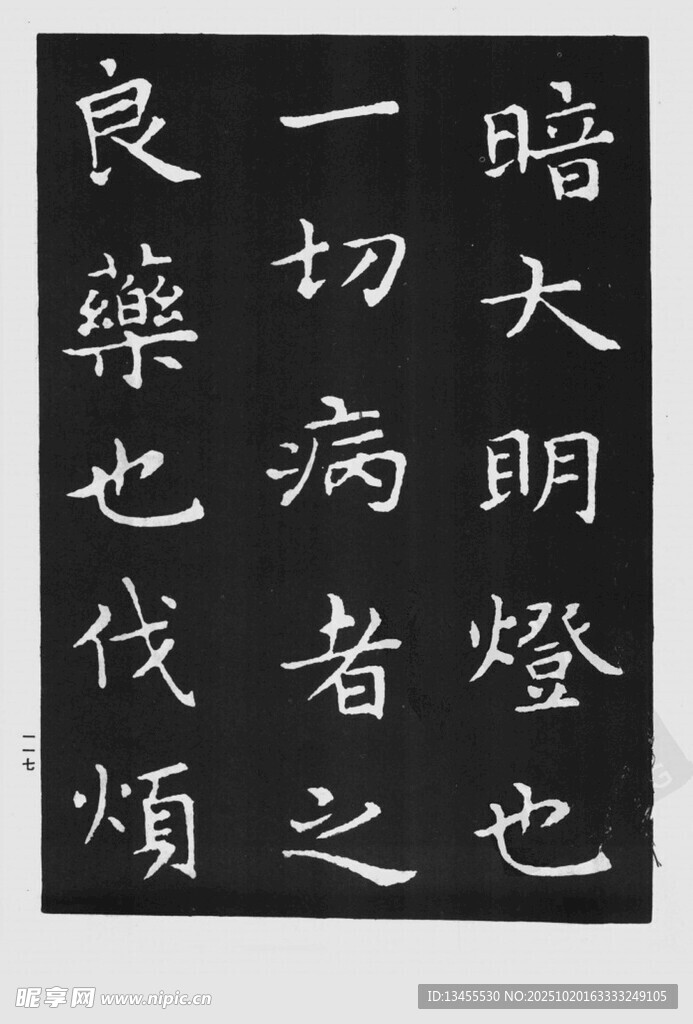 暗大明燈也
一切病者之
良藥也伐煩
一一七
昵享网 www.nipic.cn
ID:13455530 NO:20251020163333249105